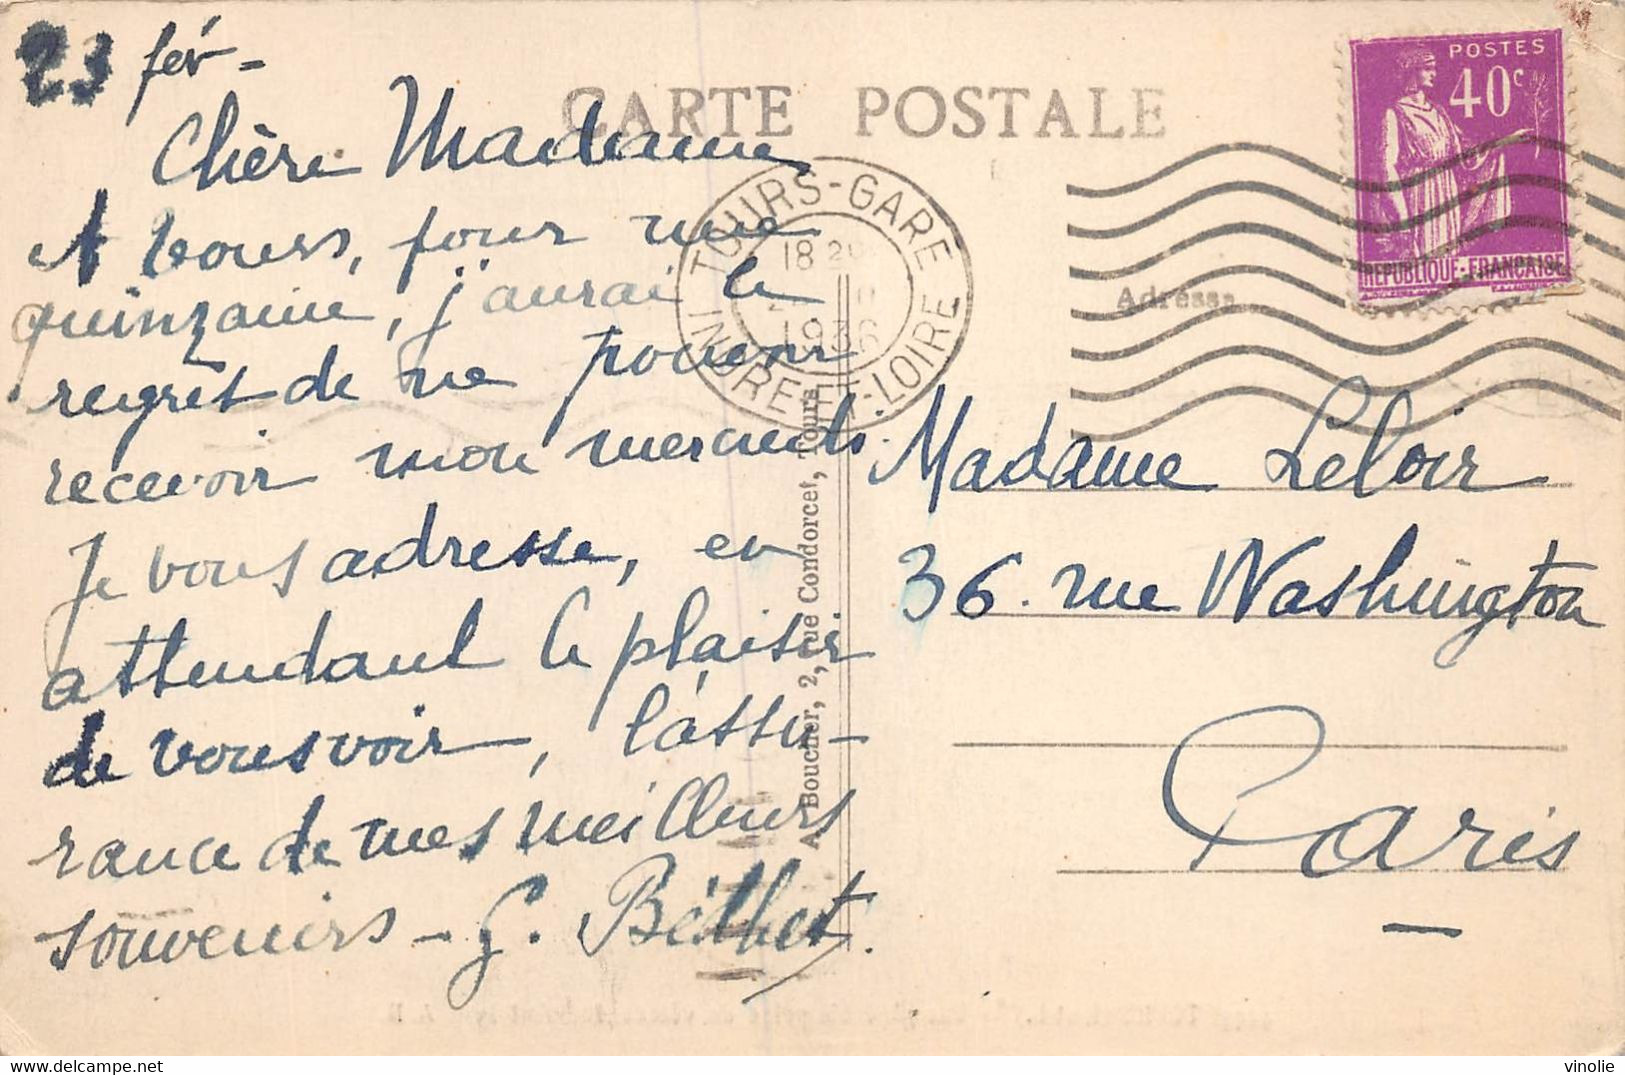 23 fév -
Chère Madame
A Tours, pour une
quinzaine, j'aurai le
regret de ne pouvoir
recevoir mon mercredi.
Je vous adresse, en
attendant le plaisir
de vous voir, l'assu-
rance de mes meilleurs
souvenirs - G. Béthet.
CARTE POSTALE
TOURS-GARE
18 20
1936
INDRE-ET-LOIRE
POSTES
40c
REPUBLIQUE-FRANCAISE
Adresse
A. Boucher, 2, rue Condorcet, Tours
Madame Leloir
36. rue Washington
Paris
vinolie